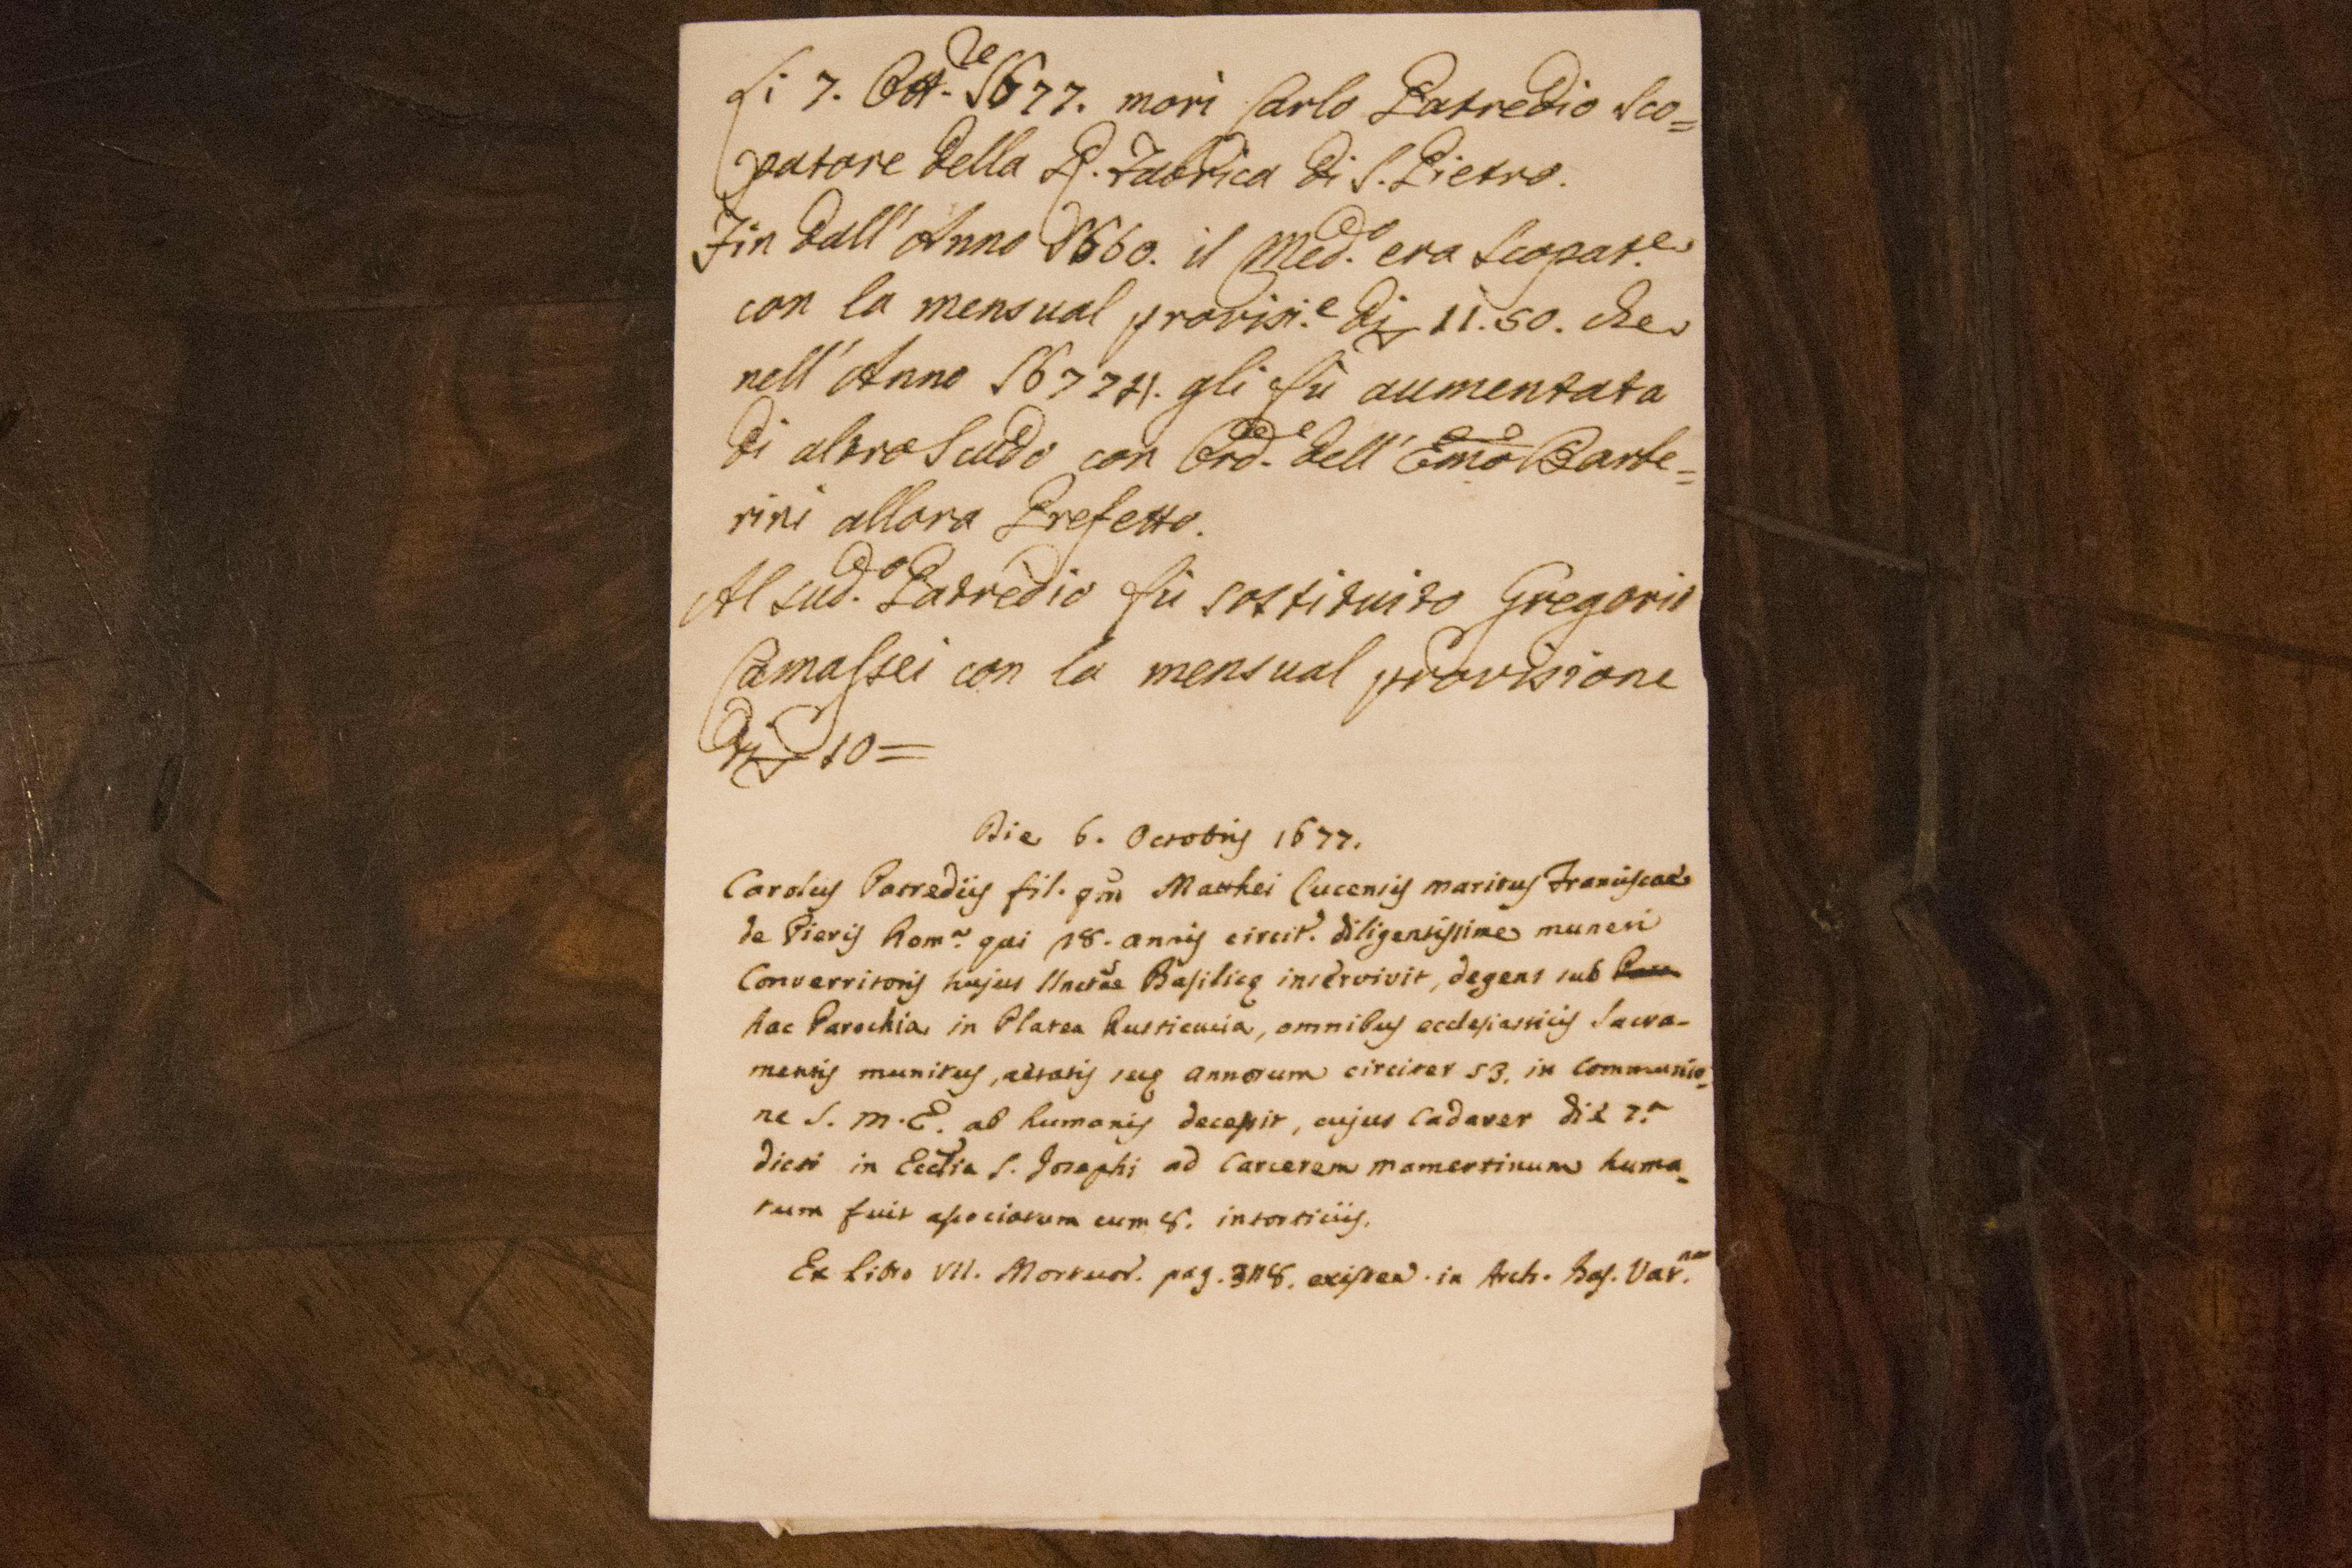 Li 7. Ott.re 1677. morì Carlo Patredio Sco=
patore della R. Fabrica di S. Pietro.
Fin dall' Anno 1660. il Med.o era Scopat.e
con la mensual provisi.e di 11.50. che
nell' Anno 167 gli fù aumentata
di altro Scudo con Ord.e dell' Emo Barbe=
rini allora Prefetto.
Al sud.o Patredio fù sostituito Gregorio
Camassei con la mensual provisione
di 10=
Die 6. Octobris 1677.
Carolus Patredius fil. qm Matthei Lucensis maritus Franciscae
de Pieris Rom. qui 18. annis circit. diligentissime muneri
Converritoris hujus Basilicę inservivit, degens sub
hac Parochia in Platea Rusticucia, omnibus ecclesiasticis Sacra-
mentis munitus, aetatis suę annorum circiter 53. in Communio-
ne S. M. E. ab humanis decessit, cujus Cadaver die 7.a
dicti in Ecclia S. Josephi ad Carcerem Mamertinum huma-
tum fuit associatum cum 8. intorticiis.
Ex Libro VII. Mortuor. pag. existen. in Arch. Bas. Vat.nae